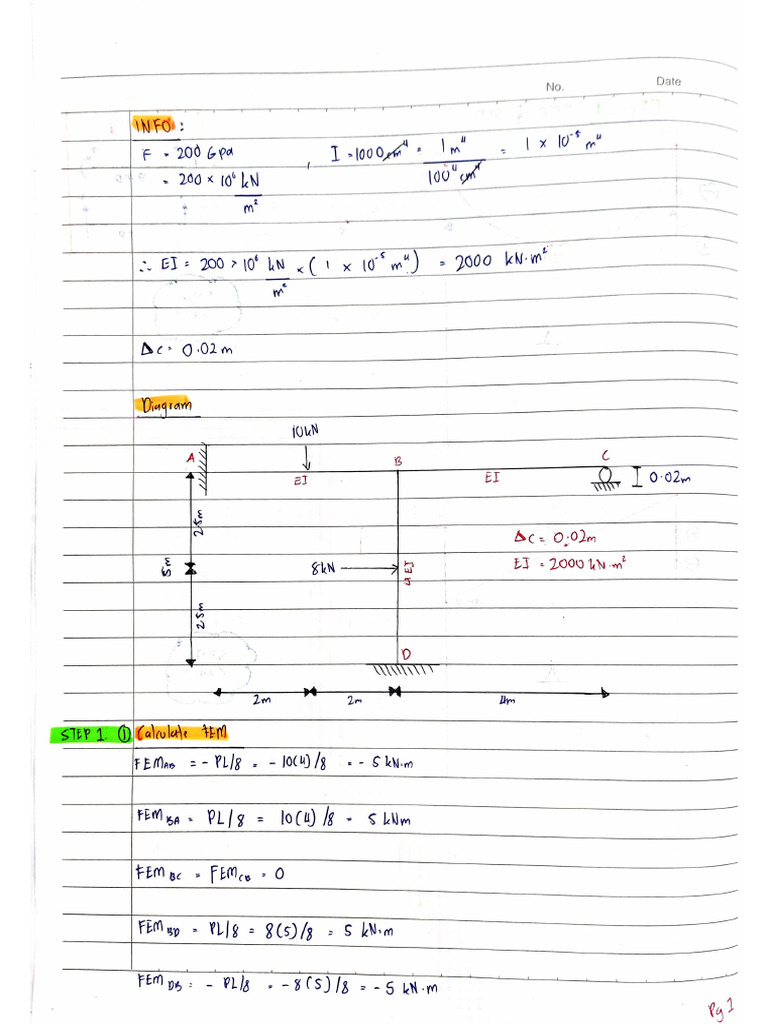 No.
Date
INFO :
E = 200 Gpa , I = 1000 cm⁴ = 1 m⁴ / 100⁴ cm⁴ = 1 × 10⁻⁵ m⁴
= 200 × 10⁶ kN / m²
∴ EI = 200 × 10⁶ kN / m² × ( 1 × 10⁻⁵ m⁴ ) = 2000 kN·m²
Δc = 0.02m
Diagram
10kN
A
B
C
EI
EI
0.02m
2.5m
Δc = 0.02m
5m
8kN
EI
EI = 2000 kN·m²
2.5m
D
2m
2m
4m
STEP 1. ① Calculate FEM
FEM AB = - PL/8 = - 10(4)/8 = - 5 kN·m
FEM BA = PL/8 = 10(4)/8 = 5 kNm
FEM BC = FEM CB = 0
FEM BD = PL/8 = 8(5)/8 = 5 kN·m
FEM DB = - PL/8 = -8(5)/8 = -5 kN·m
Pg 1